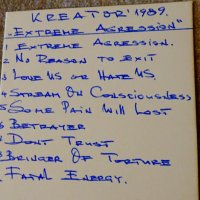 KREATOR'1989.
„EXTREME AGRESSION"
1 EXTREME AGRESSION.
2 NO REASON TO EXIT
3 LOVE US OR HATE US.
4 STREAM ON CONSCIOUSNESS
5 SOME PAIN WILL LOST
6 BETRAYER
7 DONT TRUST
8 BRINGER OF TORTURE
9 FATAL ENERGY.